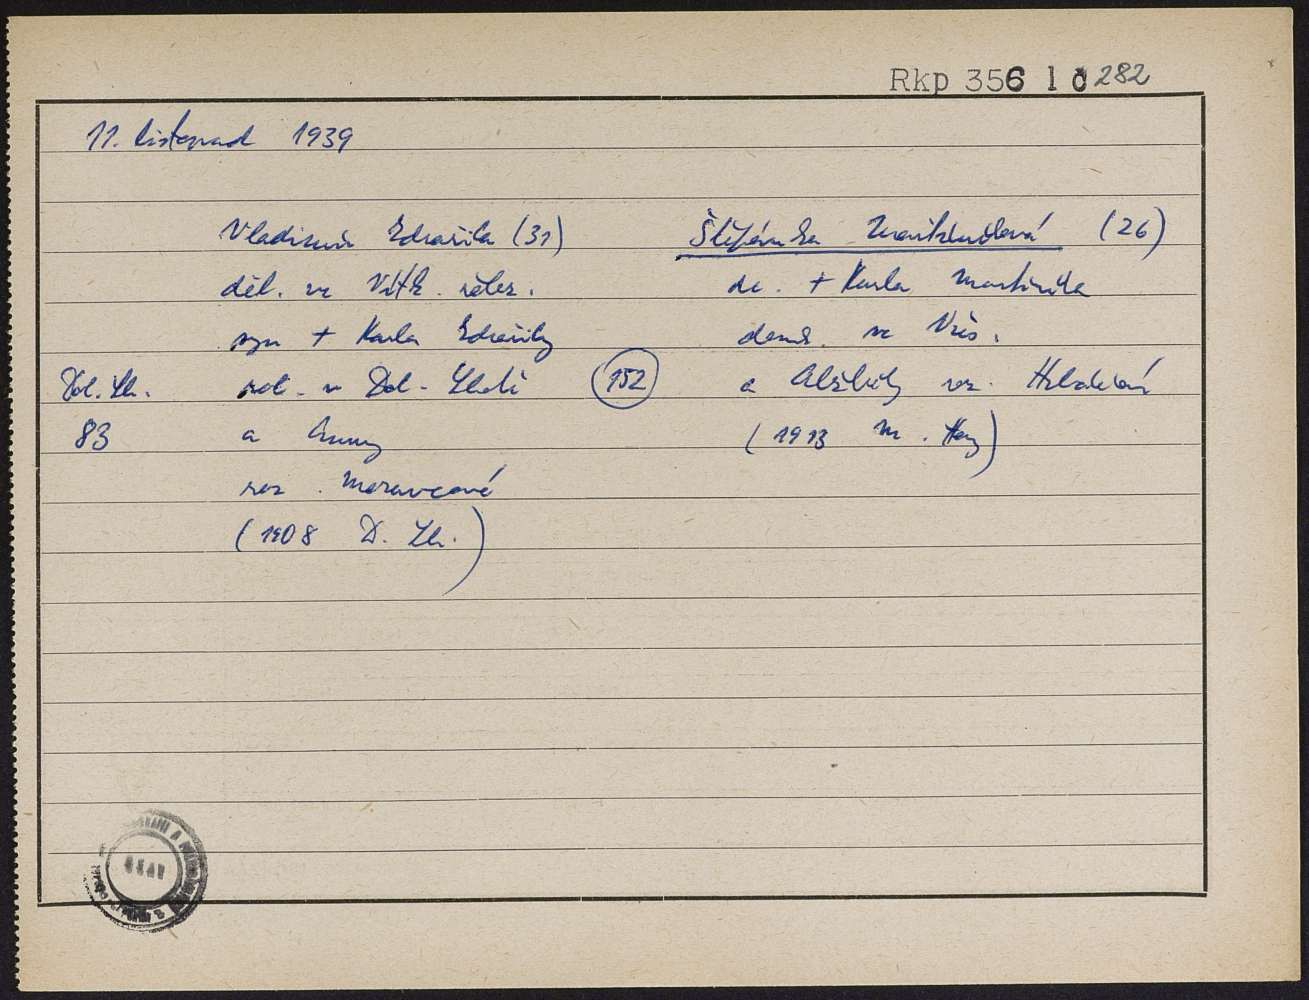 Rkp 356 10 282
11. listopad 1939
Vladimír Zdražila (31)
děl. ve Vítk. želez.
syn + Karla Zdražily
rol. v Dol. Lhotě
Dol. Lh.
83
a Anny
roz. Moravcové
(1908 D. Lh.)
152
Štěpánka (26)
dc. + Karla Martiníka
domk. ve Vřes.
a Alžběty roz.
(1913 M.